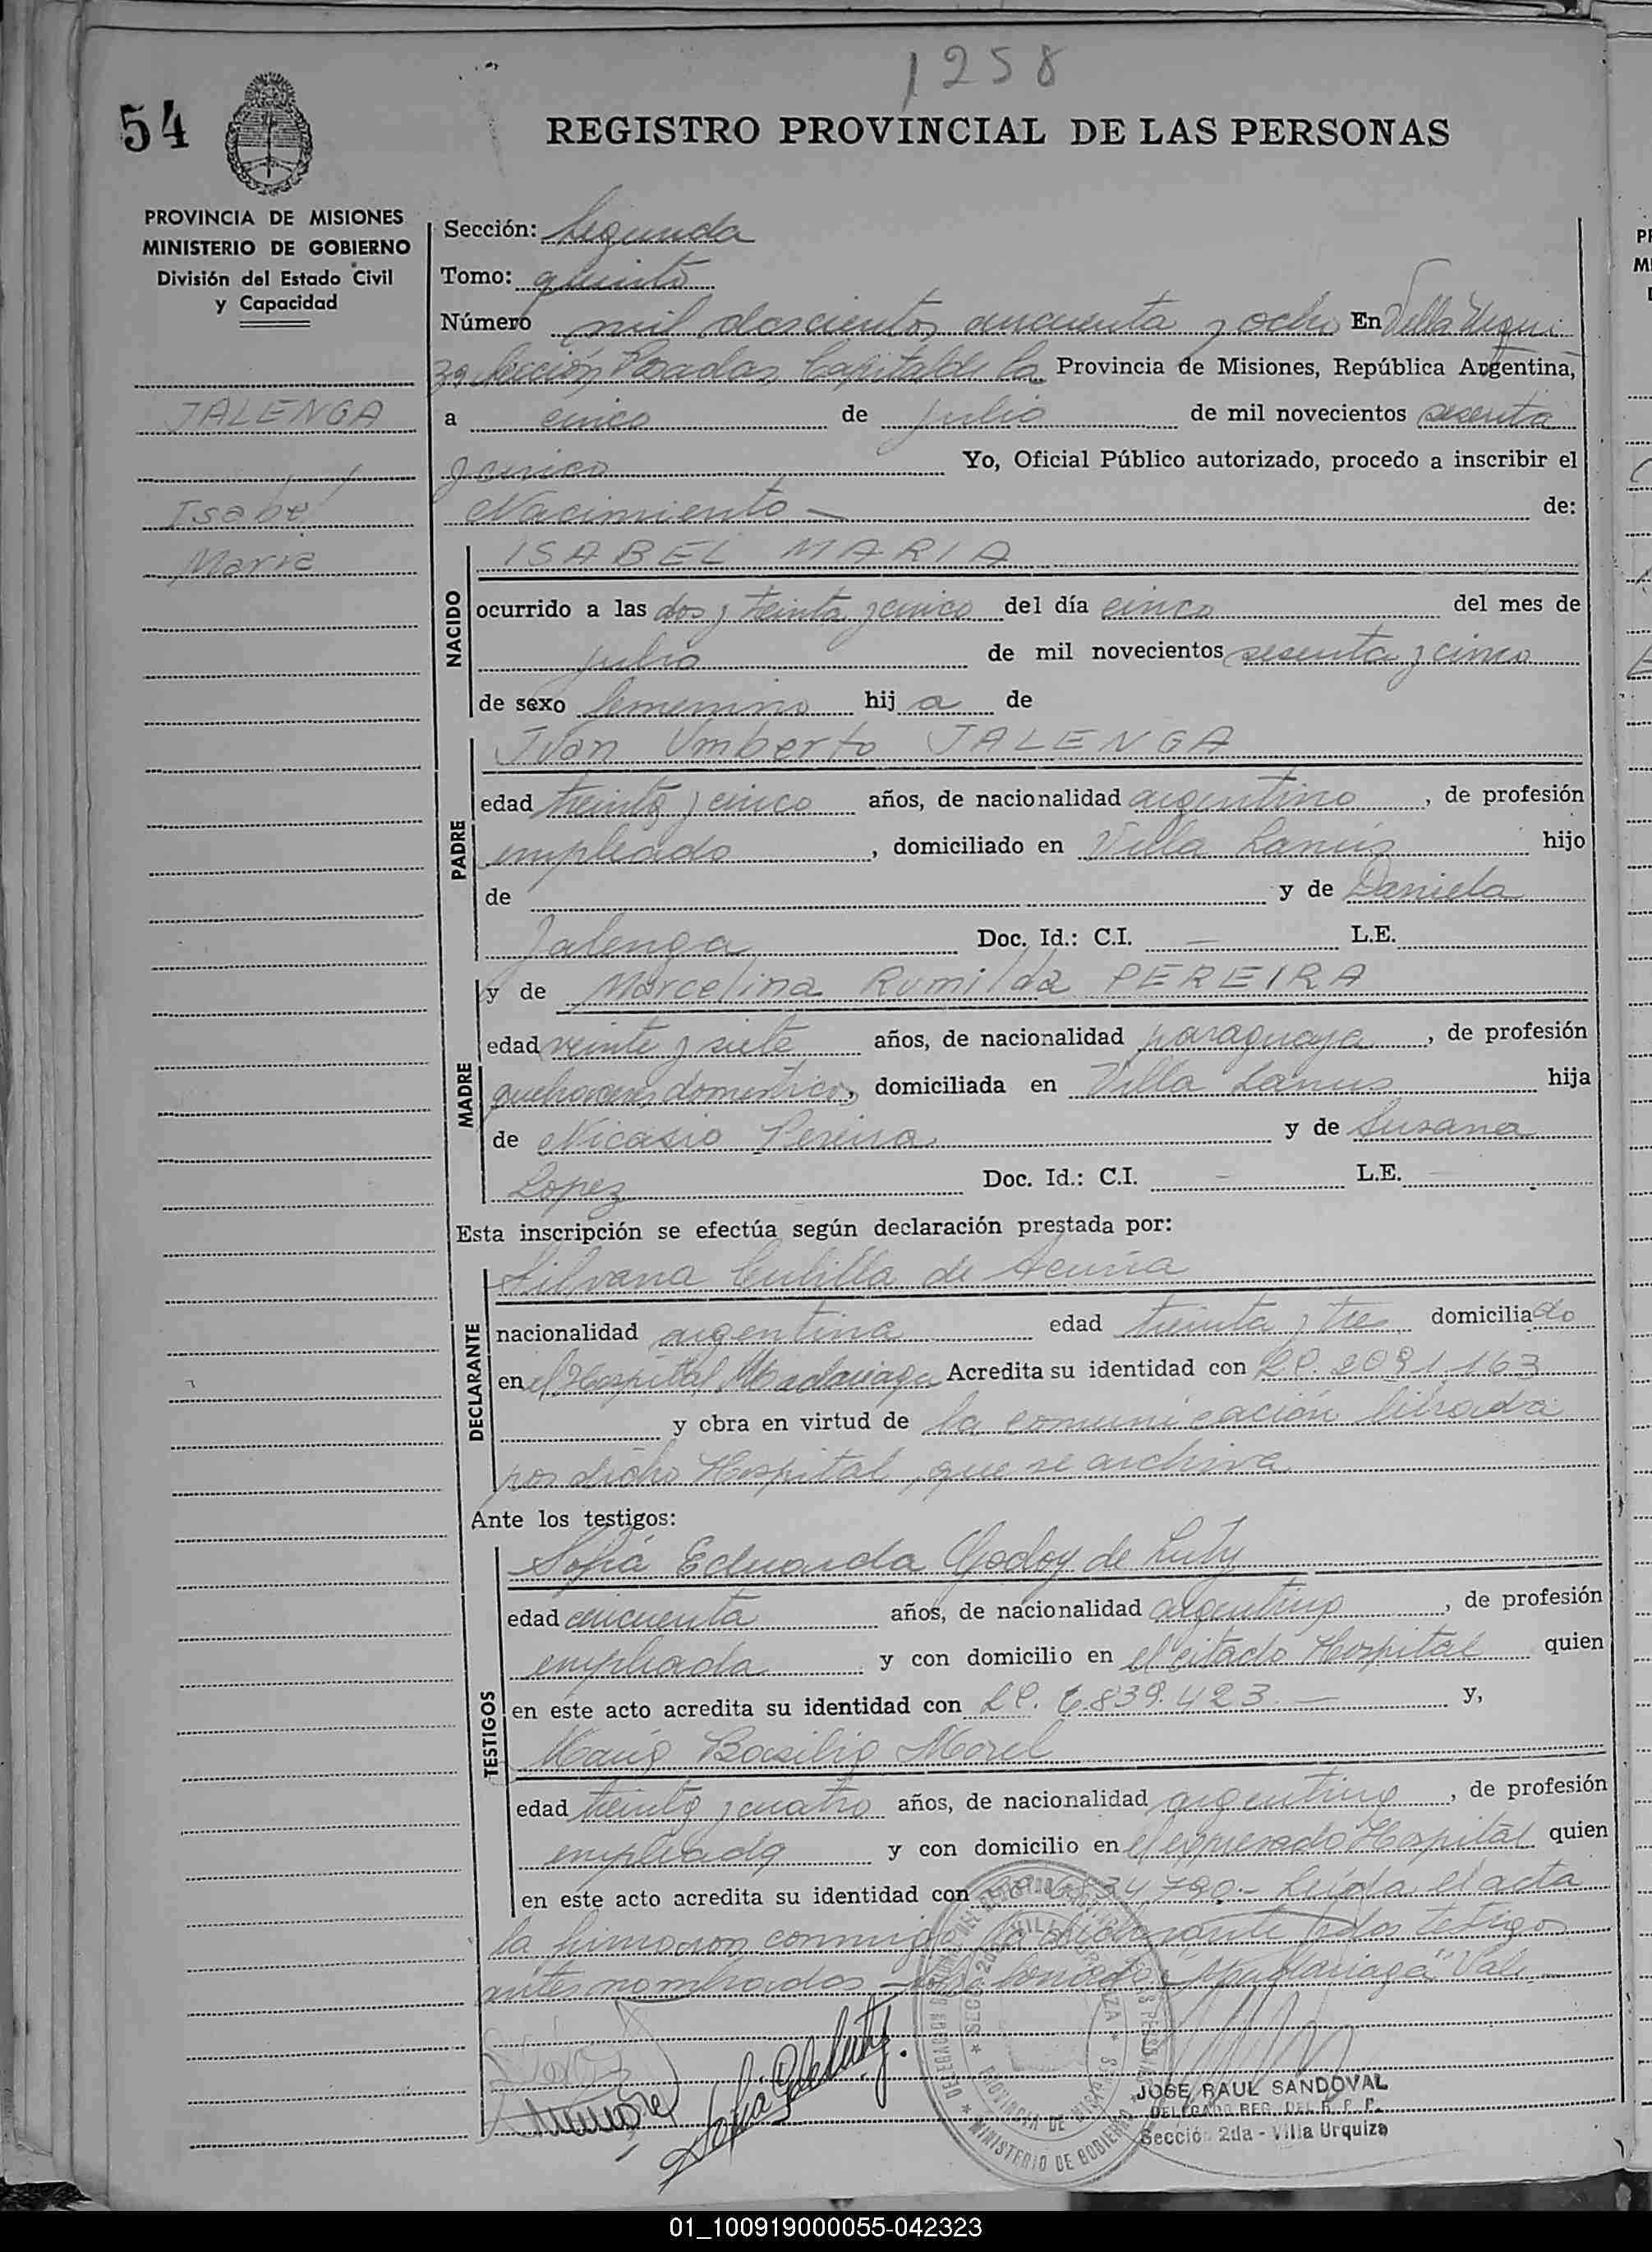 1258
54
REGISTRO PROVINCIAL DE LAS PERSONAS
PROVINCIA DE MISIONES
MINISTERIO DE GOBIERNO
División del Estado Civil
y Capacidad
JALENGA
Isabel
Maria
Sección: Segunda
Tomo: quinto
Número mil doscientos cincuenta y ocho En Villa Urqui
za Sección Posadas Capital de la Provincia de Misiones, República Argentina,
a cinco de julio de mil novecientos sesenta
y cinco Yo, Oficial Público autorizado, procedo a inscribir el
Nacimiento — de:
NACIDO
ISABEL MARIA
ocurrido a las dos y treinta y cinco del día cinco del mes de
julio de mil novecientos sesenta y cinco
de sexo femenino hij a de
PADRE
Juan Umberto JALENGA
edad treinta y cinco años, de nacionalidad argentino, de profesión
empleado, domiciliado en Villa Lanús hijo
de y de Daniela
Jalenga Doc. Id.: C.I. — L.E.
MADRE
y de Marcelina Rumilda PEREIRA
edad veinte y siete años, de nacionalidad paraguaya, de profesión
quehaceres domésticos, domiciliada en Villa Lanus hija
de Nicasio Pereira y de Susana
Lopez Doc. Id.: C.I. — L.E.
Esta inscripción se efectúa según declaración prestada por:
DECLARANTE
Silvana de Acuña
nacionalidad argentina edad treinta y tres domiciliado
en el Hospital Madariaga Acredita su identidad con LC. 2091163
y obra en virtud de la comunicación librada
por dicho Hospital, que se archiva
Ante los testigos:
TESTIGOS
Sofia Eduarda Godoy de Luty
edad cincuenta años, de nacionalidad argentina, de profesión
empleada y con domicilio en el citado Hospital quien
en este acto acredita su identidad con LC. 6.839.423. — y,
Basilia Morel
edad treinta y cuatro años, de nacionalidad argentina, de profesión
empleada y con domicilio en el expresado Hospital quien
en este acto acredita su identidad con 34790.- Leída el acta
la firmaron conmigo la declarante y los testigos
antes nombrados - "Madariaga" Vale
JOSE RAUL SANDOVAL
DELEGADO REG. DEL R. P. P.
Sección 2da - Villa Urquiza
MINISTERIO DE GOBIERNO
PROVINCIA DE MISIONES
01_100919000055-042323